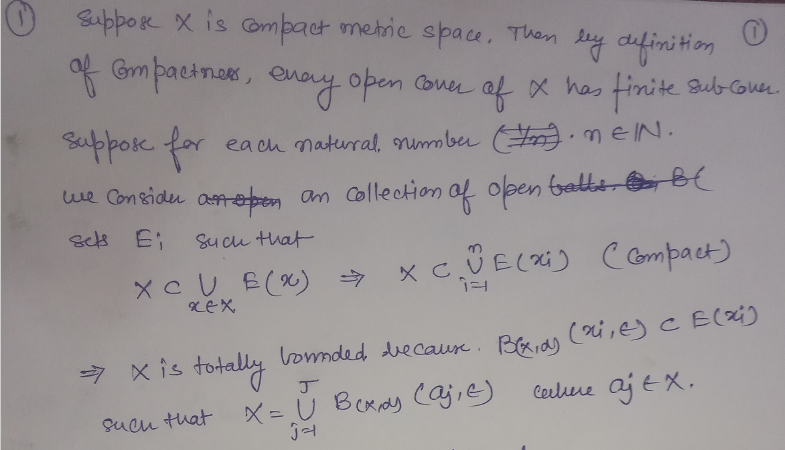 ① Suppose X is compact metric space. Then by definition ①
of compactness, every open cover of X has finite subcover.
Suppose for each natural number (1/n). n ∈ ℕ.
we consider an open an collection of open balls. B(
sets Ei such that
X ⊂ ∪_{x∈X} E(x) ⇒ X ⊂ ∪_{i=1}^{n} E(xi) (Compact)
⇒ X is totally bounded because. B(x,d) (xi, ε) ⊂ E(xi)
such that X = ∪_{j=1}^{J} B(x,d) (aj, ε) where aj ∈ X.